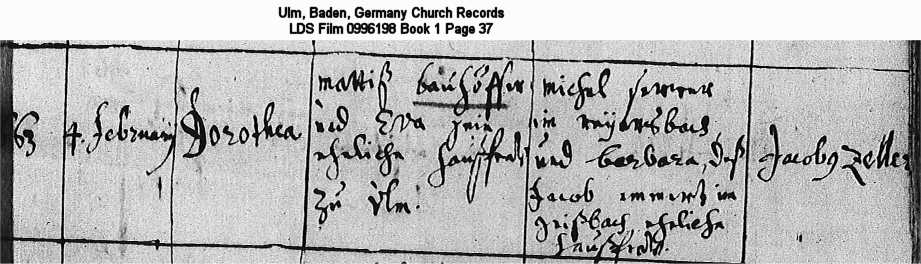 Ulm, Baden, Germany Church Records
LDS Film 0996198 Book 1 Page 37
63
4. February
Dorothea
Mattiß bauhöffer
und Eva sein
eheliche haußfraw
zu Ulm.
Michel
in
und barbara, deß
Jacob im
eheliche
haußfraw.
Jacobus Zeller